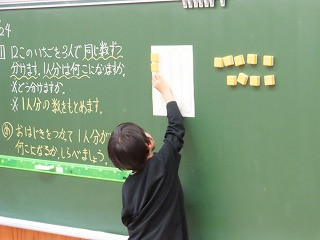 24
12このいちごを3人で同じ数ずつ
分けます。1人分は何こになりますか。
※どう分けますか。
※1人分の数をもとめます。
め おはじきをつかって1人分が
何こになるか、しらべましょう。